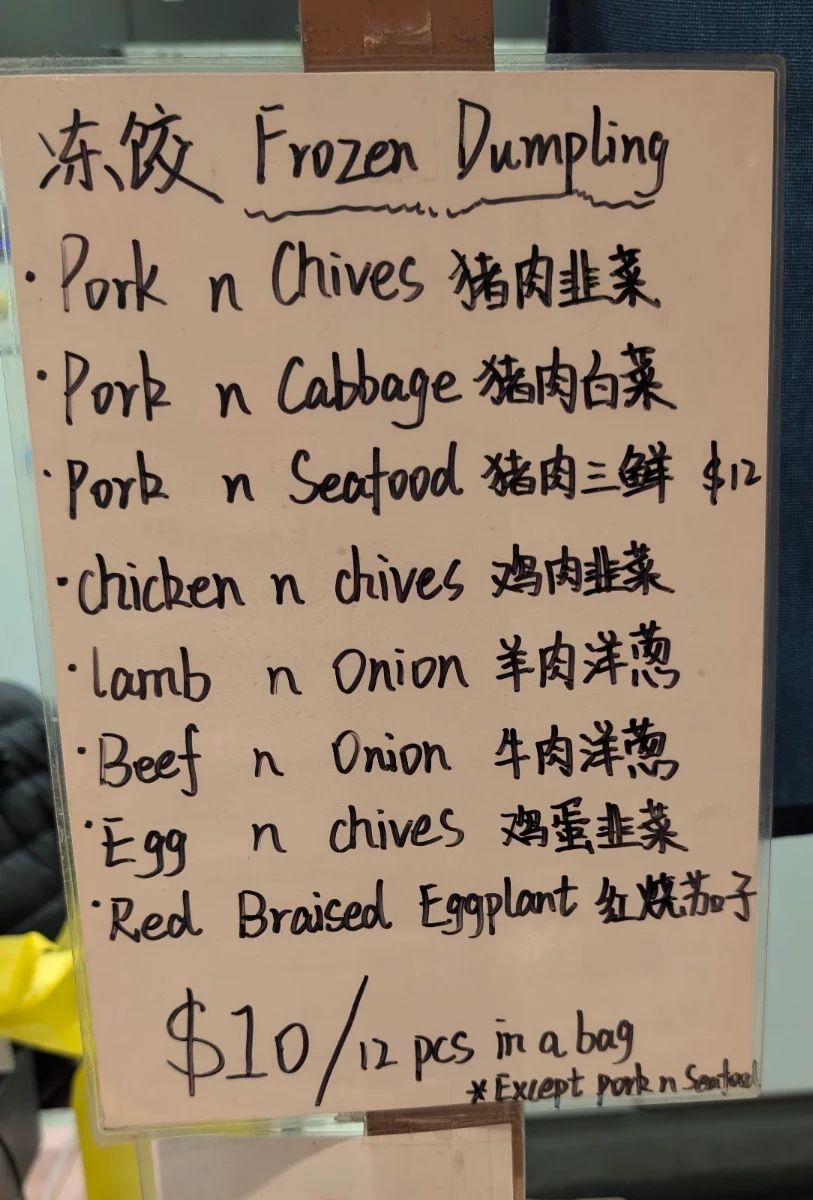 冻饺 Frozen Dumpling
· Pork n Chives 猪肉韭菜
· Pork n Cabbage 猪肉白菜
· Pork n Seafood 猪肉三鲜 $12
· chicken n chives 鸡肉韭菜
· lamb n Onion 羊肉洋葱
· Beef n Onion 牛肉洋葱
· Egg n chives 鸡蛋韭菜
· Red Braised Eggplant 红烧茄子
$10/12 pcs in a bag
* Except pork n Seafood